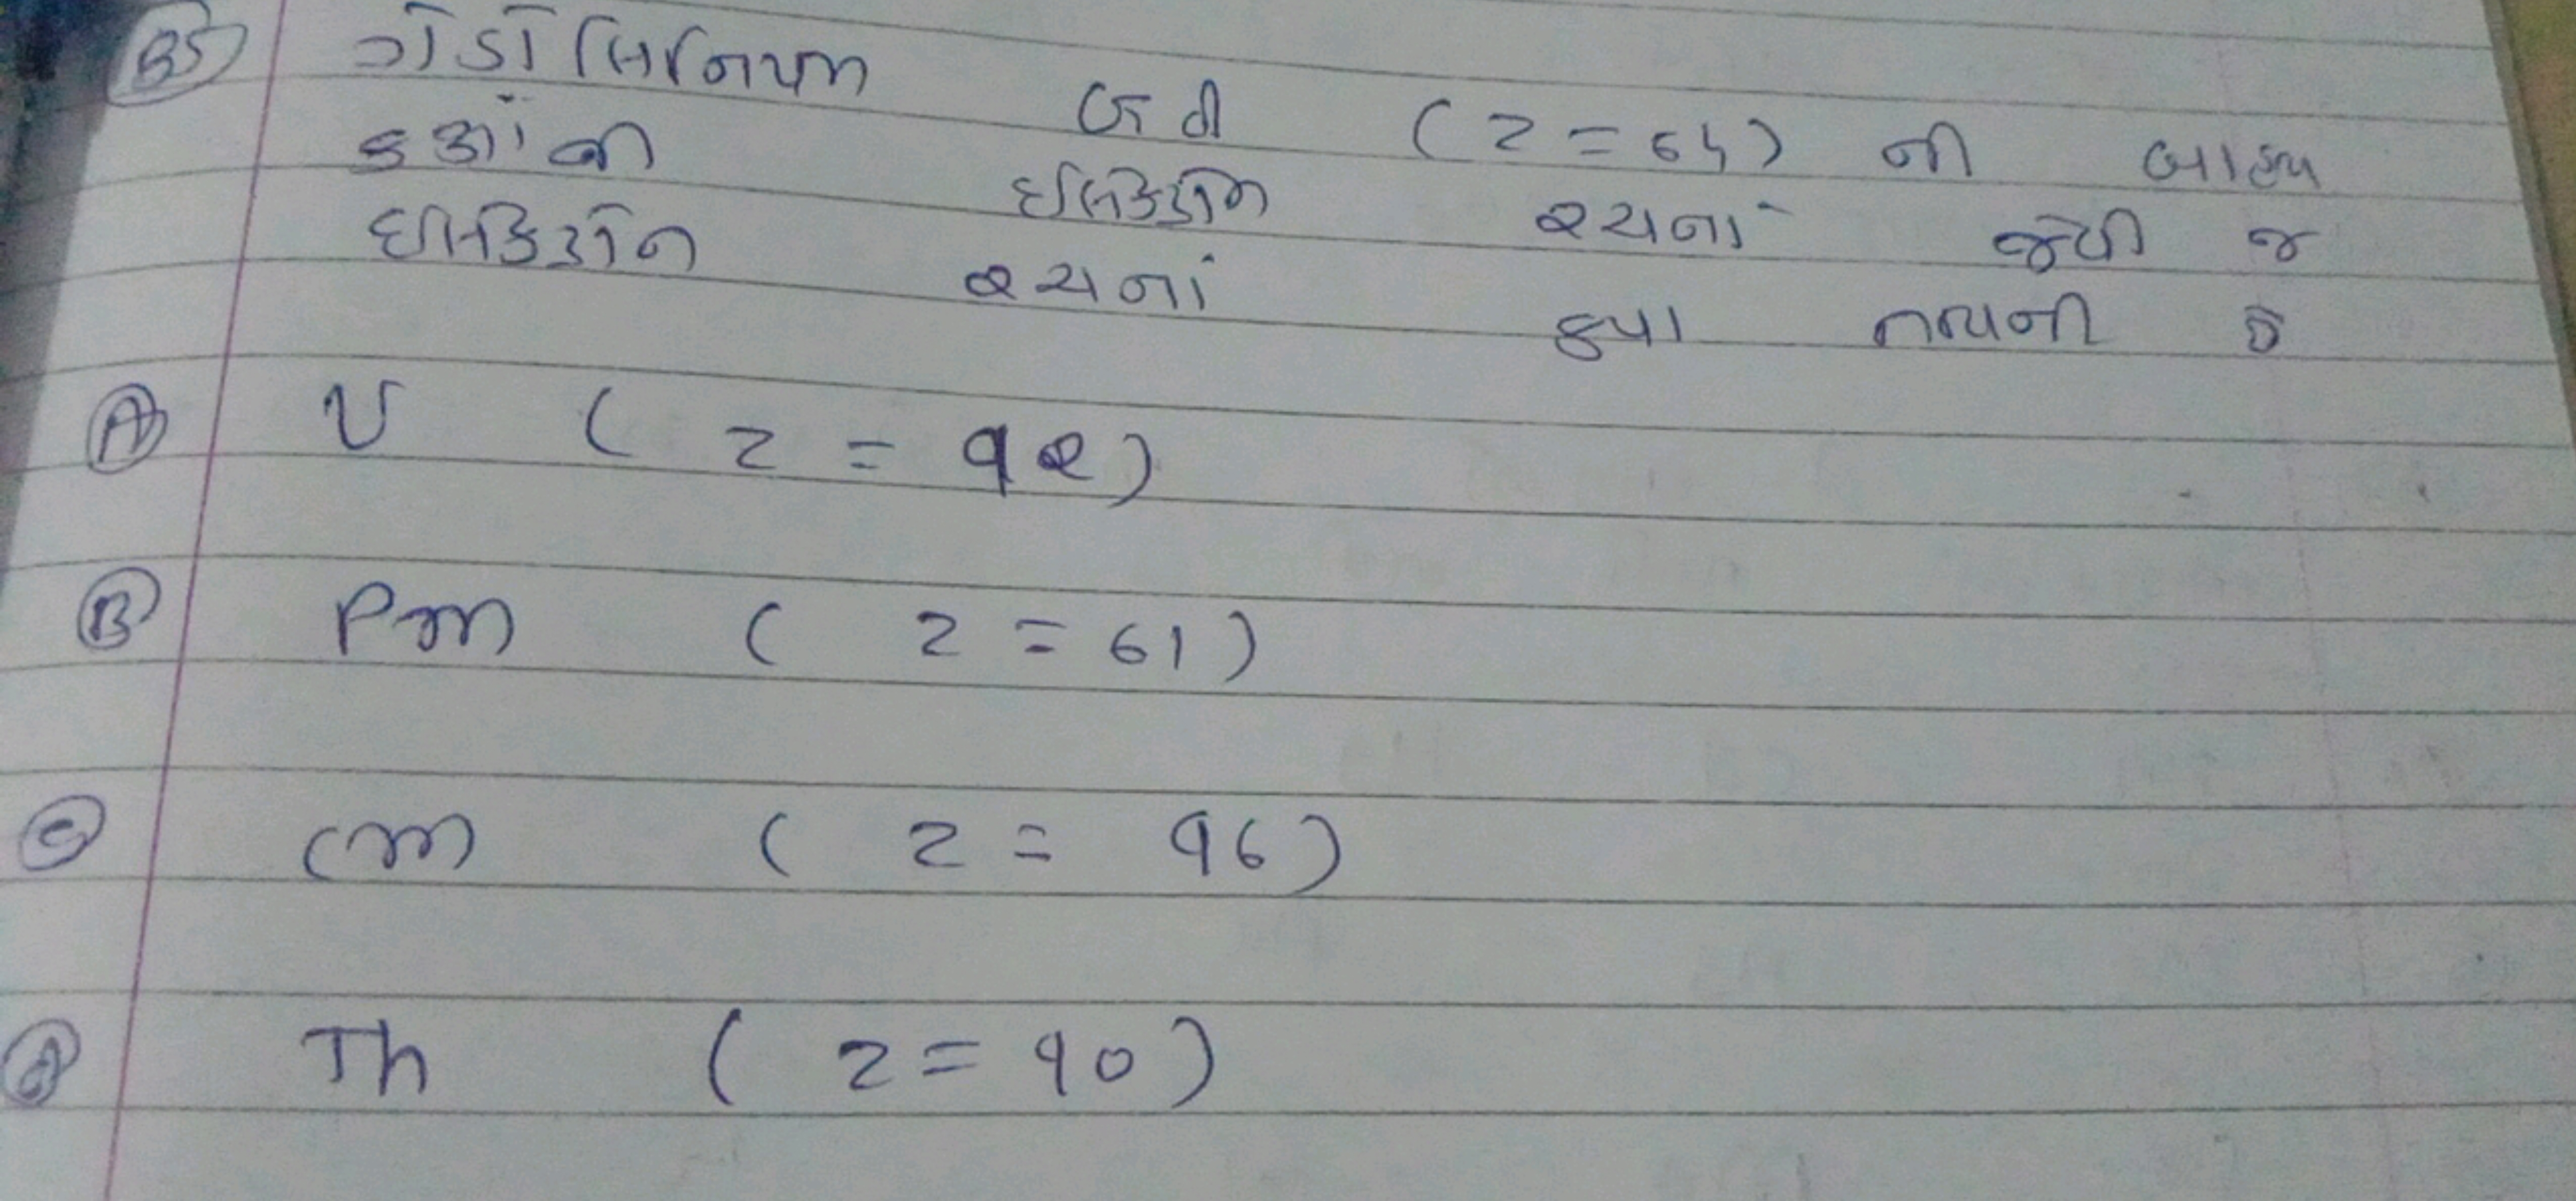 35) ગેડોલિનિયમ Gd (Z = 64) ની બાહ્ય
કક્ષાની ઇલેક્ટ્રોન રચનાં જેવી જ
ઇલેક્ટ્રોન રચનાં કયા તત્વની છે
(A) U (Z = 92)
(B) Pm (Z = 61)
(C) Cm (Z = 96)
(D) Th (Z = 90)